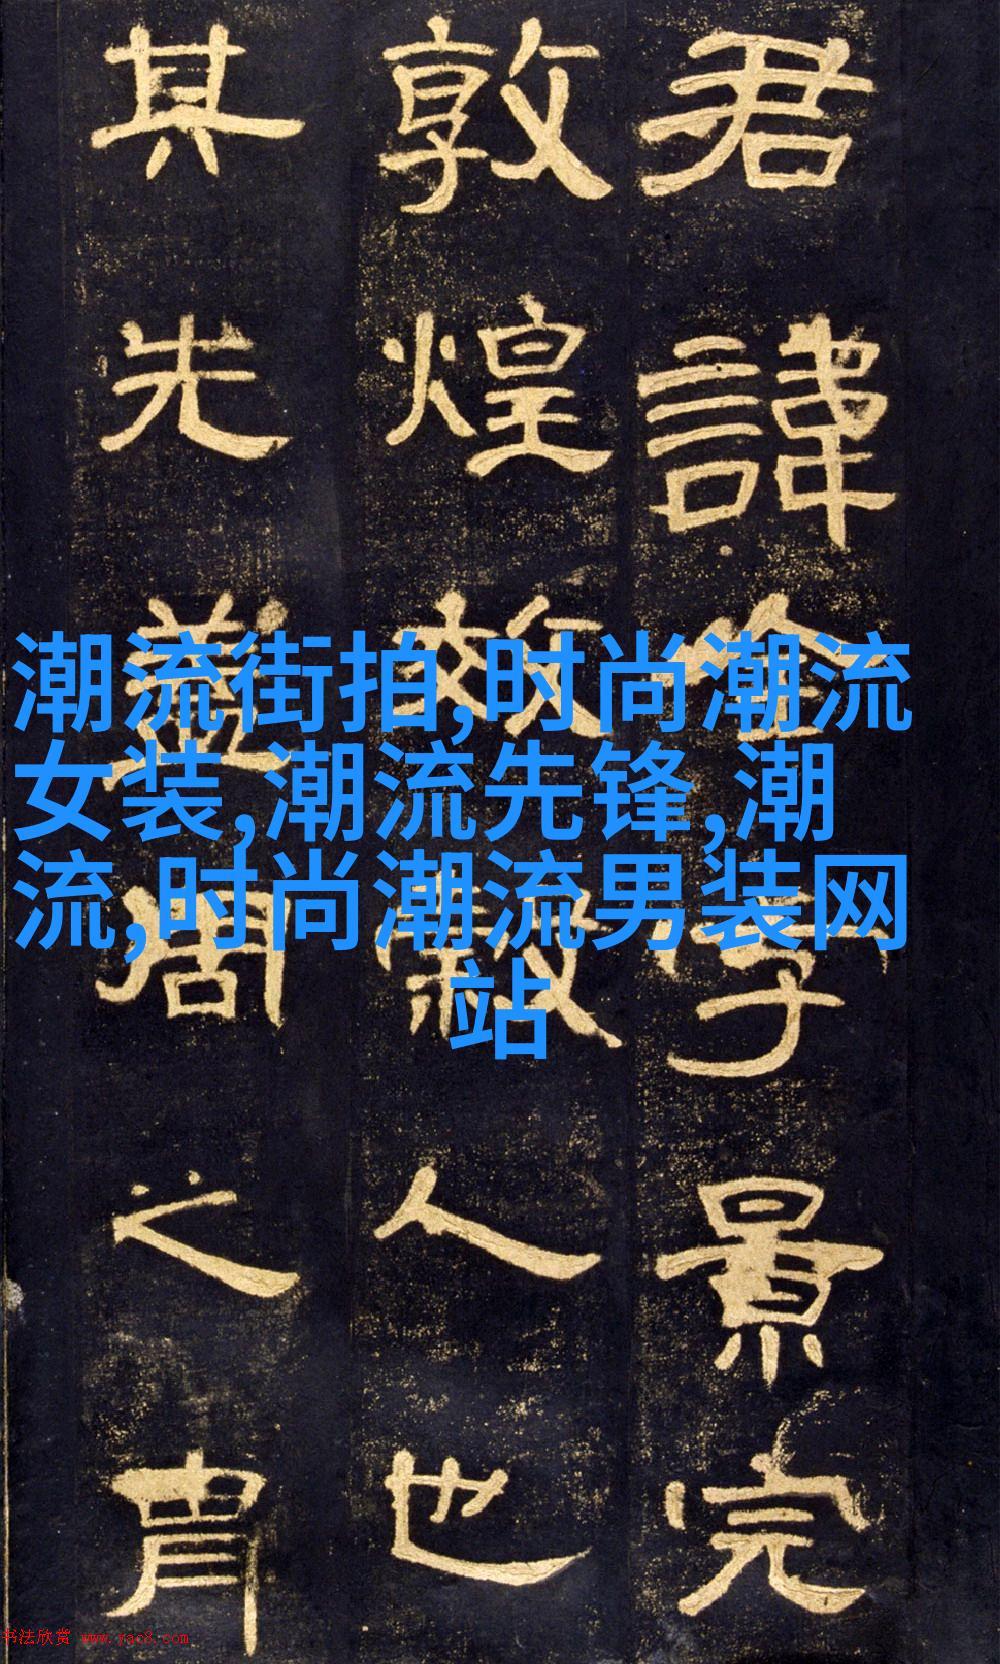 君諱全字景完
敦煌效穀人也
其先蓋周之胄
潮流街拍,时尚潮流
女装,潮流先锋,潮
流,时尚潮流男装网
站
书法欣赏 www.yac8.com